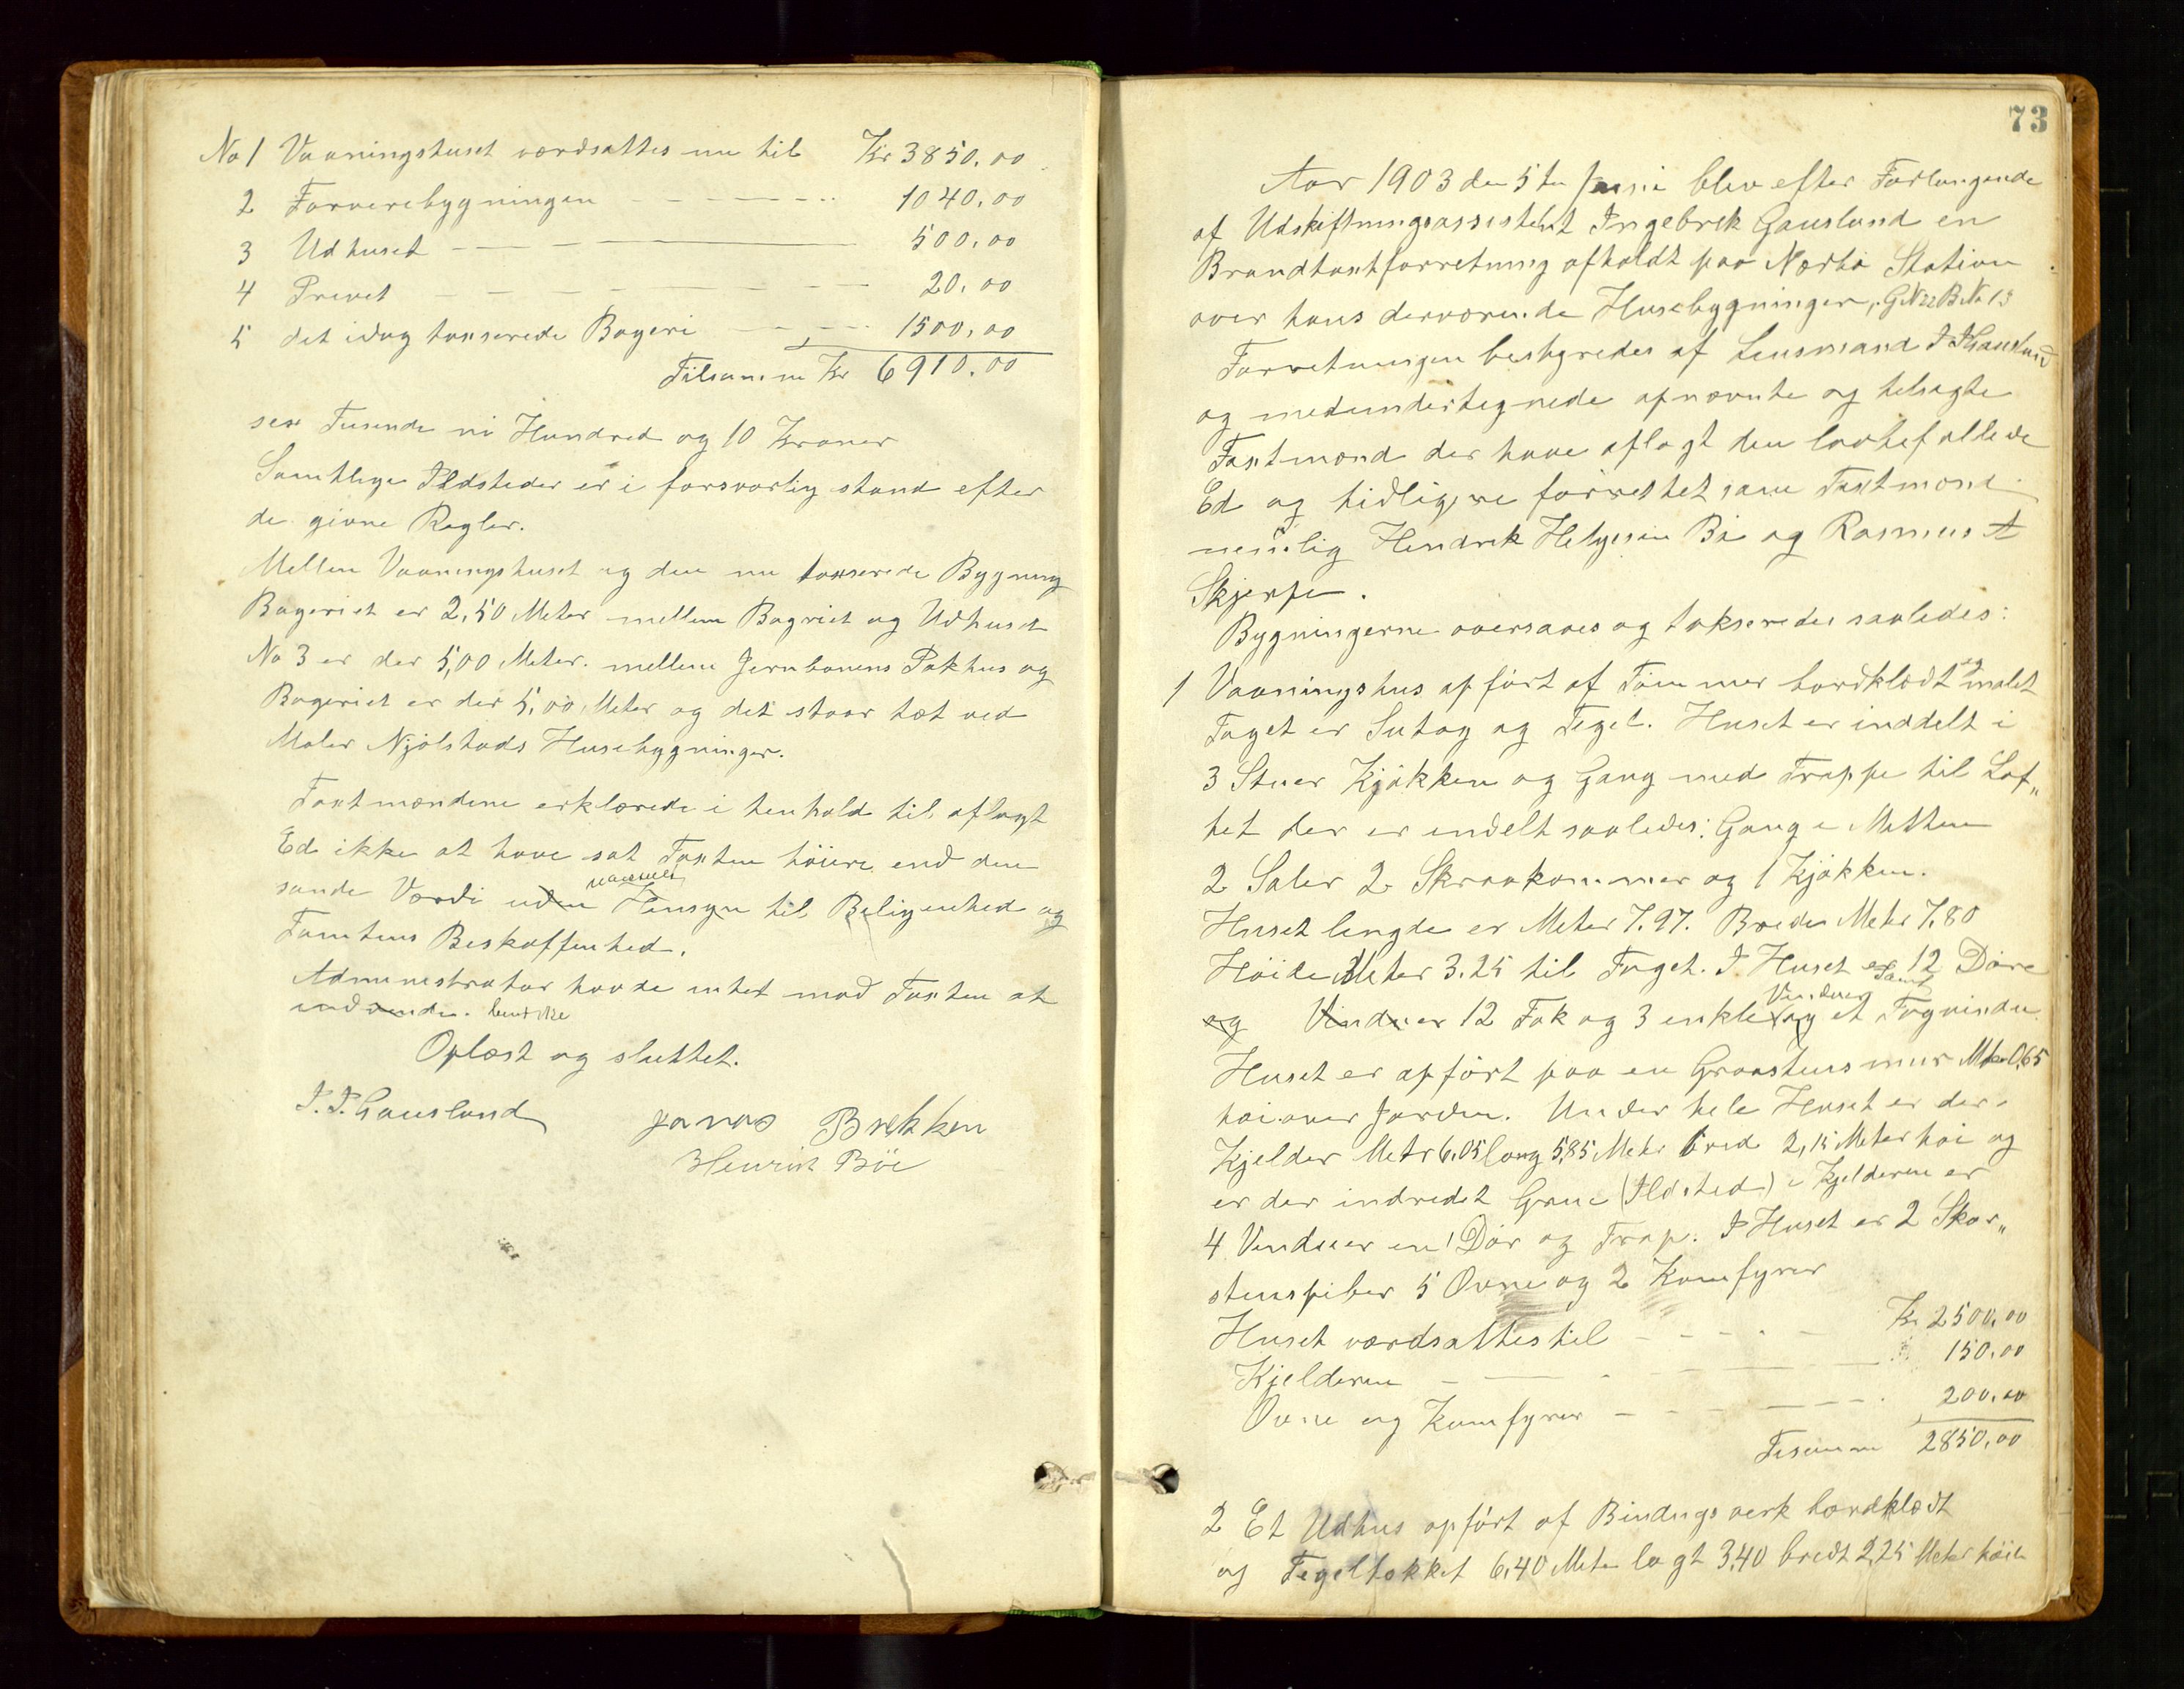 No 1 Vaaningshuset værdsattes nu til Kr 3850.00
2 Farverebygningen 1040.00
3 Udhuset 500.00
4 Privet 20.00
5 det idag taxserede Bageri 1500.00
Tilsamm Kr 6910.00
sex Tusende ni Hundred og 10 Kroner
Samtlige Ildsteder er i forsvarlig stand efter
de givne Regler.
Mellem Vaaningshuset og den nu taxserede Bygning
Bageriet er 2,50 Meter mellem Bagriet og Udhuset
No 3 er der 5,00 Meter. mellem Jernbanens Pakhus og
Bageriet er der 5,00 Meter og det staar tæt ved
Maler Njølstads Husebygninger.
Taxtmændene erklærede i henhold til aflagt
Ed ikke at have sat Taxten høiere end den
sande Værdi uden Hensyn til Beligenhed og
Tomtens Beskaffenhed.
Administrator havde intet mod Taxten at
indvende.
Oplæst og sluttet.
I. I. Gausland Jonas Brekken
Henrik Bøe
73
Aar 1903 den 5te Juni blev efter Forlangende
af Udskiftningsassistent Ingebrek Gausland en
Brandtaxtforretning afholdt paa Nærbø Station
over hans derværende Husebygninger, GN 22 B No 13
Forretningen bestyredes af Lensmand I. I. Gausland
og medundertegnede opnævnte og tilsagte
Taxtmænd der have aflagt den lovbefallede
Ed og tidligere forrettet som Taxtmænd
nemlig Hendrek Helgesen Bø og Rasmus A
Skjerpe.
Bygningerne oversaaes og takseredes saaledes:
1 Vaaningshus opført af Tømmer bordklædt og malet
Taget er Sutag og Tegel. Huset er inddelt i
3 Stuer Kjøkken og Gang med Trappe til Lof„
tet der er indelt saaledes: Gang i Mitten
2 Saler 2 Skraakammer og 1 Kjøkken.
Huset lengde er Meter 7.97. Brede Meter 7,80
Høide Meter 3.25 til Taget. I Huset er 12 Døre
og Vinduer 12 Fak og 3 enkle Vinduer og samt et Tagvindu
Huset er opført paa en Graastens mur Meter 0,65
høi over Jorden. Under hele Huset er der
Kjelder Metr 6.05 lang 5,85 Meter bred 2,15 Meter høi og
er der indredet Grue (Ildsted) i Kjelderen er
4 Vinduer en Dør og Trap. I Huset er 2 Skor„
stenspiber 5 Ovne og 2 Komfyrer
Huset værdsattes til Kr 2500.00
Kjelderen 150.00
Ovne og Komfyrer 200.00
Tilsamm 2850.00
2 Et Udhus opført af Bindingsverk bordklædt
og Tegeltækket 6,40 Meter lagt 3,40 bredt 2,25 Meter høit